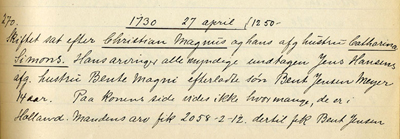 270.
1730 27 april (1250-
Skiftet sat efter Christian Magnus og hans afg hustru Catharina
Simons. Hans arving, alle myndige undtagen Jens Hansens
afg. hustru Bente Magni efterladte søn Bent Jensen Meyer
14 aar. Paa konens side vides ikke hvormange, de er i
Holland. Mandens arv fik 2058-2-12. dertil fik Bent Jensen